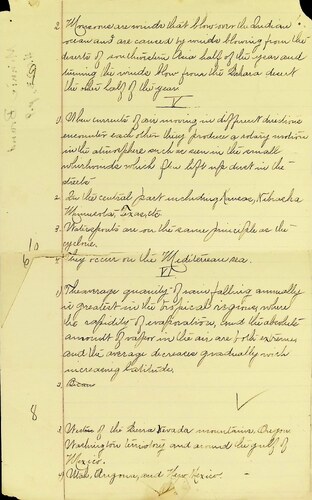 2. Monsoons are winds that blow over the Indian
ocean and are caused by winds blowing from the
deserts of southwestern Asia half of the year and
turning the winds blow from the Sahara desert
the other half of the year
V
1. When currents of air moving in different directions
encounter each other they produce a rotary motion
in the atmosphere such as seen in the small
whirlwinds which often lift up dust in the
streets
2. In the central part including Kansas, Nebraska
Minnesota, Texas etc
3. Waterspouts are on the same principle as the
cyclone.
4. They occur on the Mediterranean sea.
10
6
VI
1. The average quantity of rain falling annually
is greatest in the tropical regions, where
the rapidity of evaporation, and the absolute
amount of vapor in the air are both extremes
and the average decreases gradually with
increasing latitudes
2.
8
3. Western of the Sierra Nevada mountains, Oregon
Washington territory and around the gulf of
Mexico.
4. Utah, Arizona, and New Mexico.